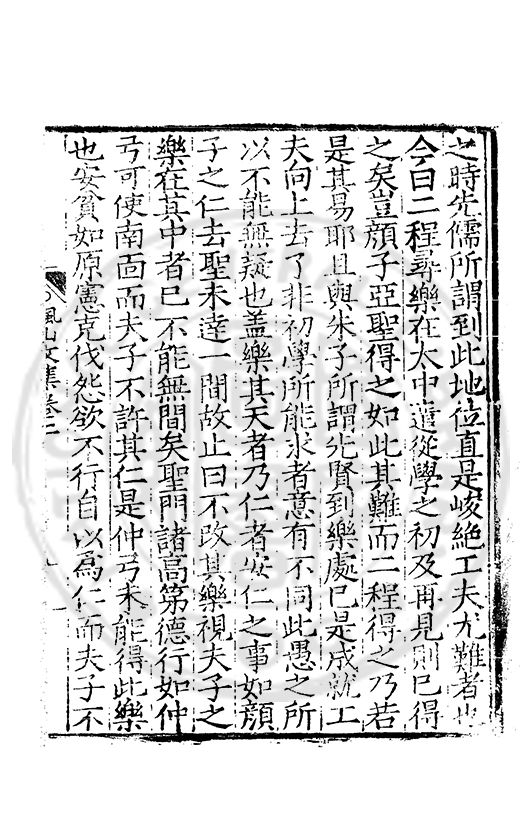 之時先儒所謂到此地位直是峻絶工夫尤難者也
今曰二程尋樂在大中遣從學之初及再見則已得
之矣豈顔子亞聖得之如此其難而二程得之乃若
是其易耶且與朱子所謂先賢到樂處已是成就工
夫向上去了非初學所能求者意有不同此愚之所
以不能無疑也盖樂其天者乃仁者安仁之事如顔
子之仁去聖未達一間故止曰不改其樂視夫子之
樂在其中者已不能無間矣聖門諸高第德行如仲
弓可使南面而夫子不許其仁是仲弓未能得此樂
也安貧如原憲克伐怨欲不行自以爲仁而夫子不
楓山文集卷二